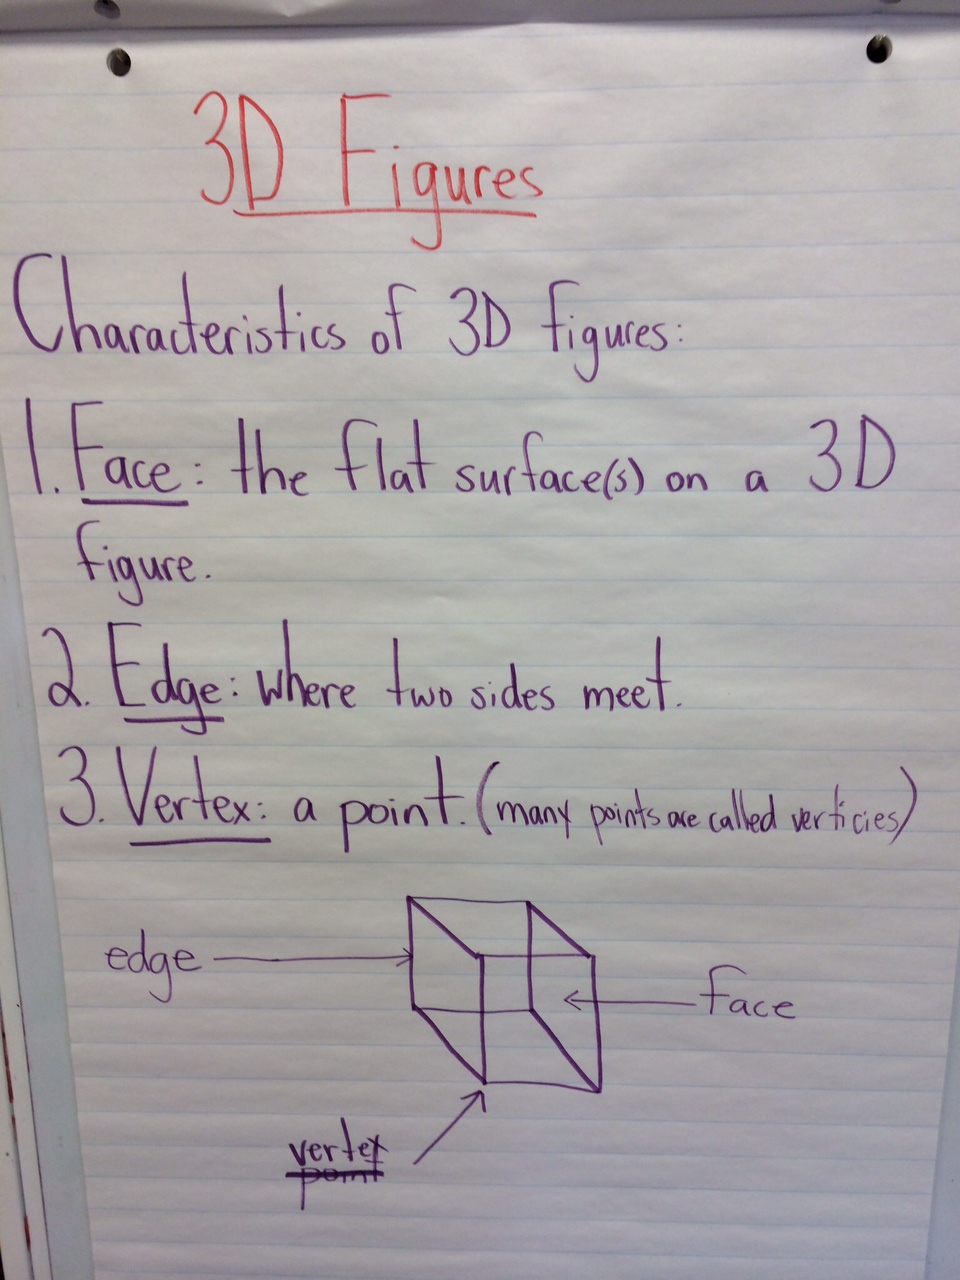 3D Figures
Characteristics of 3D figures:
1. Face: the flat surface(s) on a 3D
figure.
2. Edge: where two sides meet.
3. Vertex: a point. (many points are called verticies)
edge
face
vertex
point